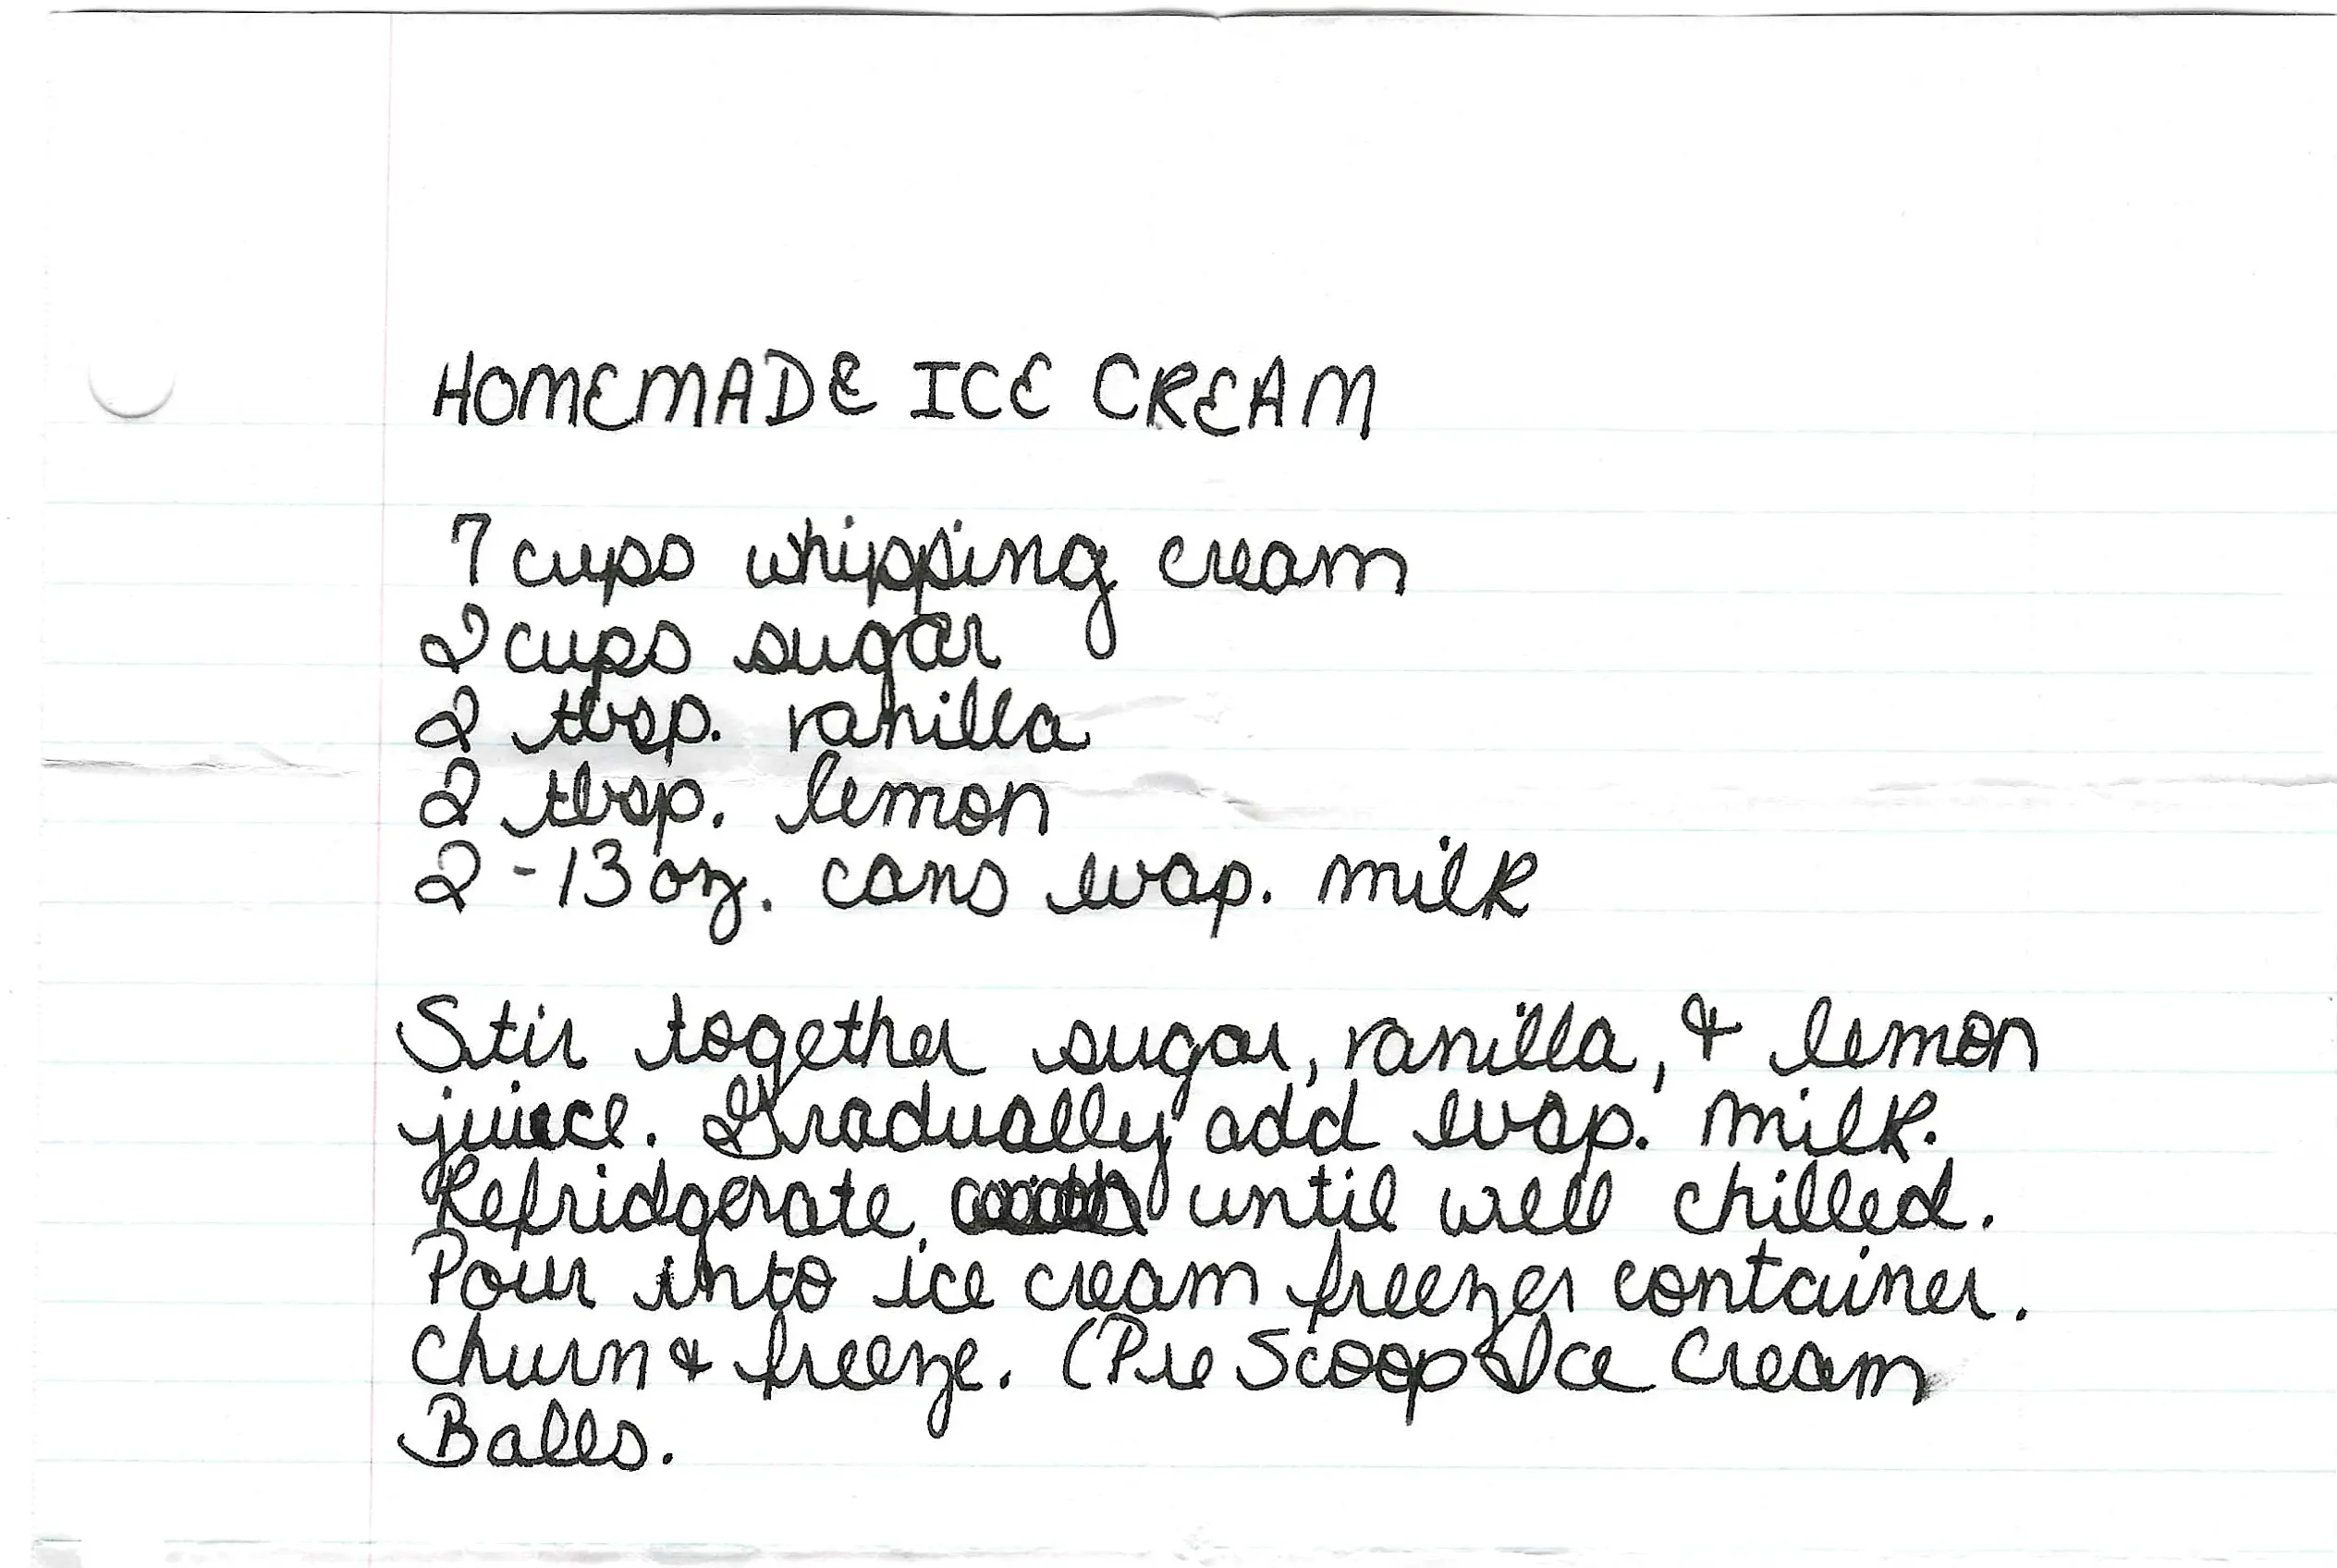 HOMEMADE ICE CREAM
7 cups whipping cream
2 cups sugar
2 tbsp. vanilla
2 tbsp. lemon
2 - 13 oz. cans evap. milk
Stir together sugar, vanilla, & lemon
juice. Gradually add evap. milk.
Refridgerate until well chilled.
Pour into ice cream freezer container.
Churn & freeze. (Pre Scoop Ice Cream
Balls.